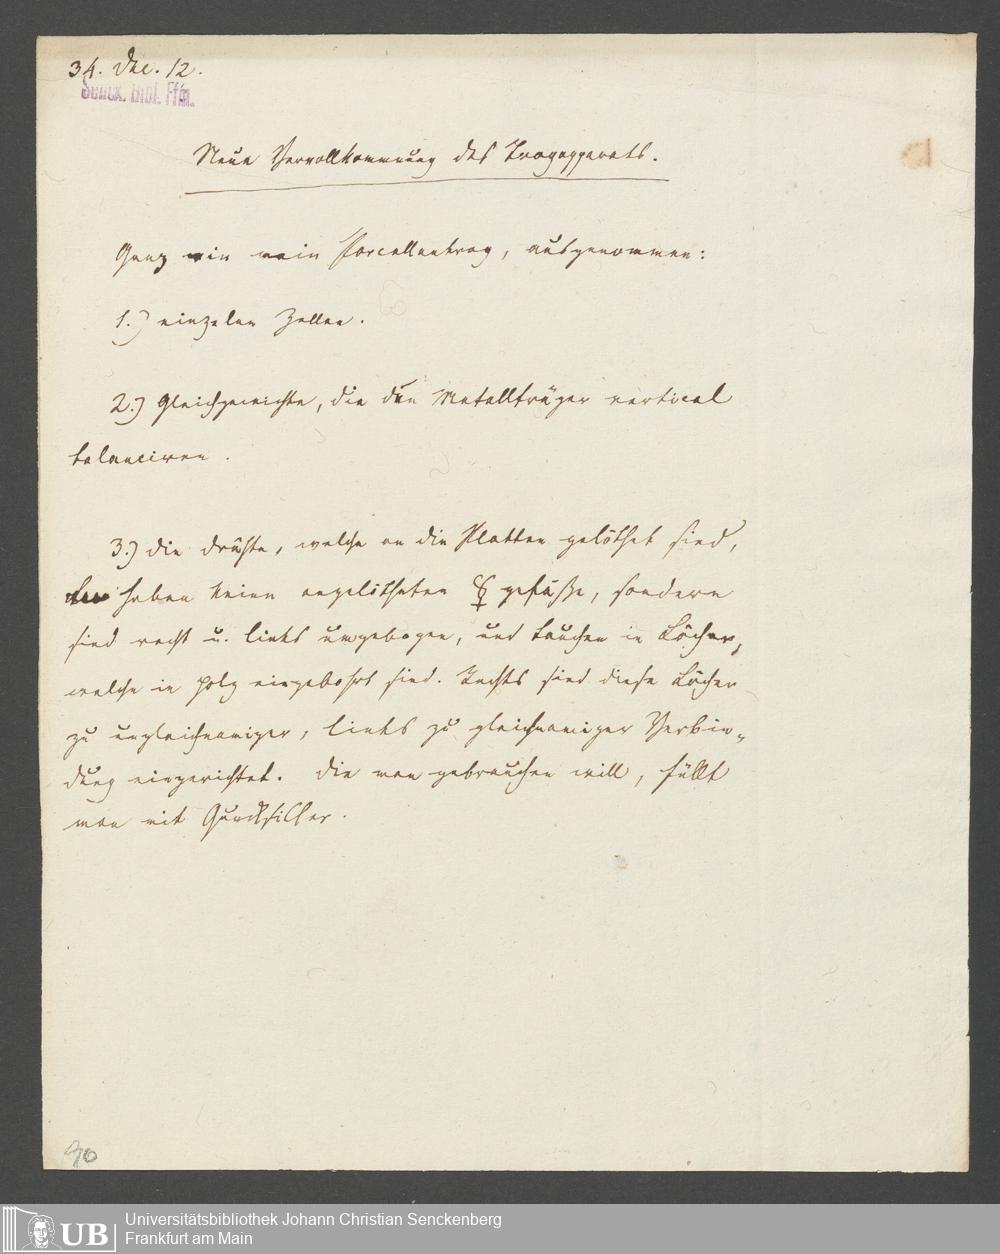 34. Dec. 12.
Senck. Bibl. Ffm.
Neue Vervollkommnung des Trogapparats.
Ganz wie mein Porcellantrog, ausgenommen:
1.) einzelne Zellen.
2.) Gleichgewichte, die den Metallträger vertical
balanciren.
3.) die dräthe, welche an die Platten gelöthet sind,
haben keine angelötheten ☿ gefäße, sondern
sind recht u. links umgebogen, und tauchen in Löcher,
welche in Holz eingebohrt sind. Rechts sind diese Löcher
zu ungleichnamiger, links zu gleichnamiger Verbin-
dung eingerichtet. die man gebrauchen will, füllt
man mit Quecksilber.
90
UB
Universitätsbibliothek Johann Christian Senckenberg
Frankfurt am Main